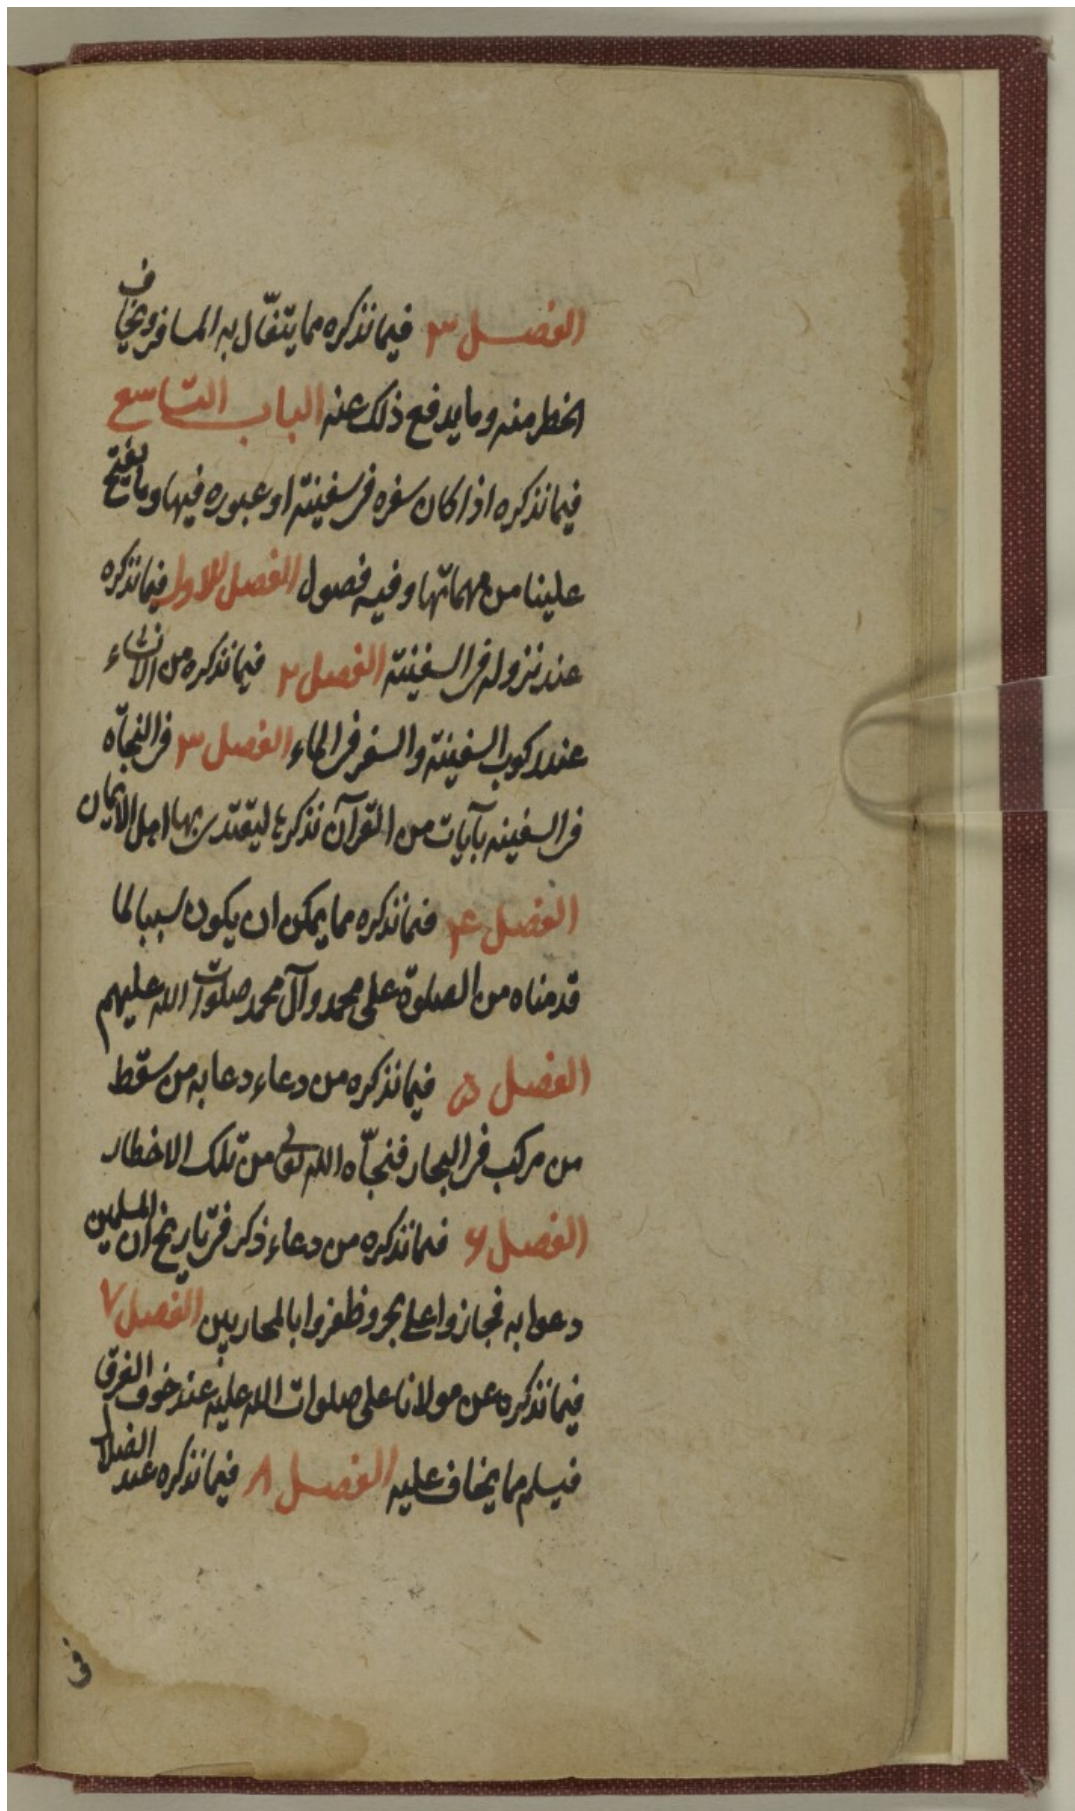 الفصل ۳ فيما نذكره مما يتفأل به المسافر ويخاف
الخطر منه وما يدفع ذلك عنه الباب التاسع
فيما نذكره اذا كان سفره فى سفينة او عبوره فيها وما يفتح
علينا من مهماتها وفيه فصول الفصل الاول فيما نذكره
عند نزوله فى السفينة الفصل ۲ فيما نذكره من الانشاء
عند ركوب السفينة والسفر فى الماء الفصل ۳ فى النجاة
فى السفينه بآيات من القرآن نذكرها ليقتدى بها اهل الايمان
الفصل ۴ فيما نذكره مما يمكن ان يكون سببا لما
قدمناه من الصلوة على محمد وآل محمد صلوات الله عليهم
الفصل ۵ فيما نذكره من دعاء دعا به من سقط
من مركب فى البحار فنجّاه الله تعالى من تلك الاخطار
الفصل ۶ فيما نذكره من دعاء ذكر فى تاريخ ان المسلمين
دعوا به فجازوا على بحر وظفروا بالمحاربين الفصل ۷
فيما نذكره عن مولانا على صلوات الله عليه عند خوف الغرق
فيسلم مما يخاف عليه الفصل ۸ فيما نذكره عند الضلال
فى